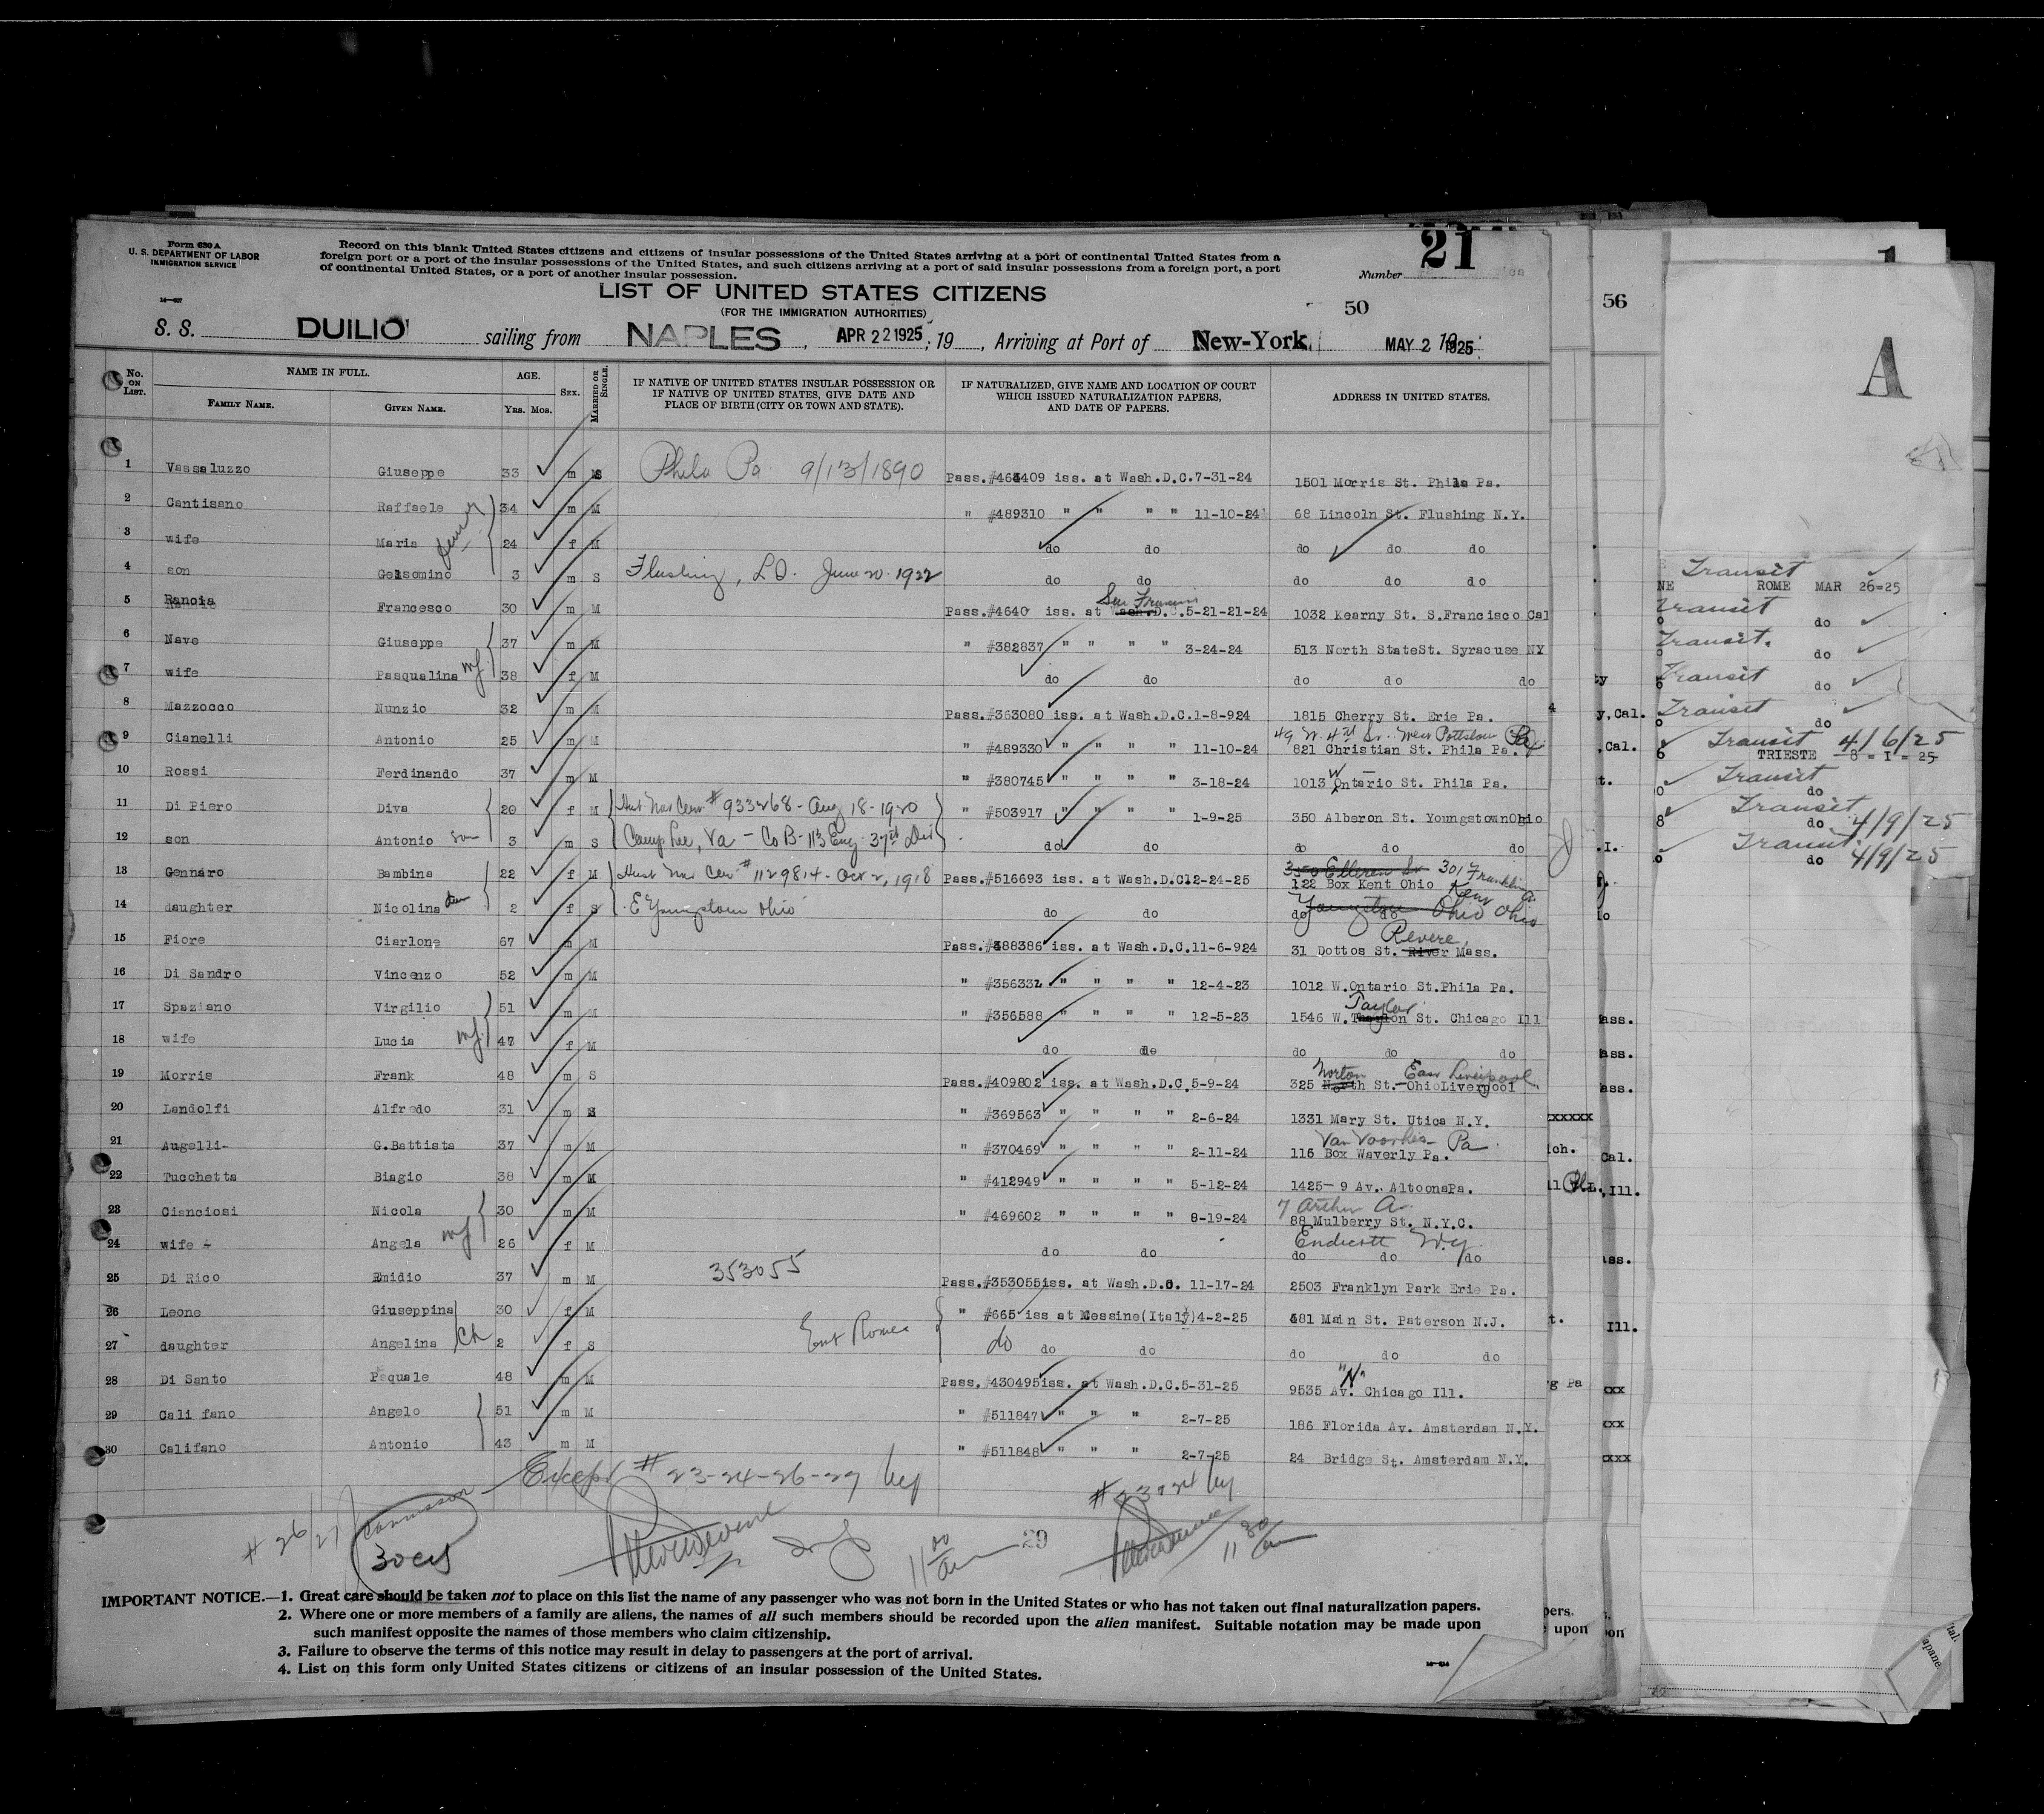 Form 630 A
U. S. DEPARTMENT OF LABOR
IMMIGRATION SERVICE
Record on this blank United States citizens and citizens of insular possessions of the United States arriving at a port of continental United States from a
foreign port or a port of the insular possessions of the United States, and such citizens arriving at a port of said insular possessions from a foreign port, a port
of continental United States, or a port of another insular possession.
Number 21
14—607
LIST OF UNITED STATES CITIZENS
(FOR THE IMMIGRATION AUTHORITIES)
50
S. S. DUILIO sailing from NAPLES, APR 22 1925, 19 , Arriving at Port of New-York, MAY 2 1925
No. ON LIST. NAME IN FULL. FAMILY NAME. GIVEN NAME. AGE. Yrs. Mos. SEX. MARRIED OR SINGLE. IF NATIVE OF UNITED STATES INSULAR POSSESSION OR IF NATIVE OF UNITED STATES, GIVE DATE AND PLACE OF BIRTH (CITY OR TOWN AND STATE). IF NATURALIZED, GIVE NAME AND LOCATION OF COURT WHICH ISSUED NATURALIZATION PAPERS, AND DATE OF PAPERS. ADDRESS IN UNITED STATES.
1 Vassaluzzo Giuseppe 33 m S Phila Pa. 9/13/1890 Pass.#464409 iss. at Wash.D.C.7-31-24 1501 Morris St. Phila Pa.
2 Cantisano Raffaele 34 m M " #489310 " " " " 11-10-24 68 Lincoln St. Flushing N.Y.
3 wife Maria 24 f M do do do do do
4 son Gelsomino 3 m S Flushing, L.I. June 20. 1922 do do do do do
5 Rancia Francesco 30 m M Pass.#4640 iss. at San Francisco 5-21-21-24 1032 Kearny St. S.Francisco Cal
6 Nave Giuseppe 37 m M " #382837 " " " " 3-24-24 513 North StateSt. Syracuse NY
7 wife Pasqualina 38 f M do do do do do
8 Mazzocco Nunzio 32 m M Pass.#363080 iss. at Wash.D.C.1-8-924 1815 Cherry St. Erie Pa.
49 N. 4th St. West Pottstown Pa
9 Cianelli Antonio 25 m M " #489330 " " " " 11-10-24 821 Christian St. Phila Pa.
10 Rossi Ferdinando 37 m M " #380745 " " " " 3-18-24 1013 W Ontario St. Phila Pa.
11 Di Piero Diva 20 f M Hus Nat Cer #933268 - Aug 18-1920 " #503917 " " " 1-9-25 350 Alberon St. YoungstownOhio
12 son Antonio son 3 m S Camp Lee, Va - Co B - 113 Eng. 37th Div do do do do do
13 Gennaro Bambina 22 f M Hus Nat Cer #1129814 - Oct 2, 1918 Pass.#516693 iss. at Wash.D.C12-24-25 122 Box Kent Ohio 301 Franklin
14 daughter Nicolina 2 f S E Youngstown Ohio do do do do Kent Ohio
15 Fiore Ciarlone 67 m M Pass.#488386 iss. at Wash.D.C.11-6-924 31 Dottos St. River Mass. Revere
16 Di Sandro Vincenzo 52 m M " #356332 " " " " 12-4-23 1012 W.Ontario St.Phila Pa.
17 Spaziano Virgilio 51 m M " #356588 " " " " 12-5-23 1546 W. Taylor St. Chicago Ill
18 wife Lucia 47 f M do do do do do
19 Morris Frank 48 m S Pass.#409802 iss. at Wash.D.C.5-9-24 325 North St.-OhioLiverpool Norton East Liverpool
20 Landolfi Alfredo 31 m S " #369563 " " " " 2-6-24 1331 Mary St. Utica N.Y.
21 Augelli- G.Battista 37 m M " #370469 " " " " 2-11-24 116 Box Waverly Pa. Van Voorhes - Pa
22 Tucchetta Biagio 38 m M " #412949 " " " " 5-12-24 1425- 9 Av. AltoonaPa.
23 Cianciosi Nicola 30 m M " #469602 " " " " 8-19-24 88 Mulberry St. N.Y.C. 7 Arthur A.
24 wife - Angela 26 f M do do do do do Endicott N.Y.
25 Di Rico Emidio 37 m M 353055 Pass.#353055iss. at Wash.D.C. 11-17-24 2503 Franklyn Park Erie Pa.
26 Leone Giuseppina 30 f M " #665 iss at Messine(Italy)4-2-25 481 Main St. Paterson N.J.
27 daughter Angelina Ch 2 f S Rome do do do do do do
28 Di Santo Pasquale 48 m M Pass.#430495iss. at Wash.D.C.5-31-25 9535 "N" Av. Chicago Ill.
29 Cali fano Angelo 51 m M " #511847 " " " 2-7-25 186 Florida Av. Amsterdam N.Y.
30 Califano Antonio 43 m M " #511848 " " " 2-7-25 24 Bridge St. Amsterdam N.Y.
Except # 23-24-26-27
# 23 24
# 26/27
30
29
11 00/am
11 30/am
IMPORTANT NOTICE.—1. Great care should be taken not to place on this list the name of any passenger who was not born in the United States or who has not taken out final naturalization papers.
2. Where one or more members of a family are aliens, the names of all such members should be recorded upon the alien manifest. Suitable notation may be made upon
such manifest opposite the names of those members who claim citizenship.
3. Failure to observe the terms of this notice may result in delay to passengers at the port of arrival.
4. List on this form only United States citizens or citizens of an insular possession of the United States.
56
A
Transit
ROME MAR 26=25
Transit
do
Transit.
do
Transit
do
Transit
do
Transit 4/6/25
TRIESTE 8 = I = 25
Transit
do
Transit
do 4/9/25
Transit
do 4/9/25